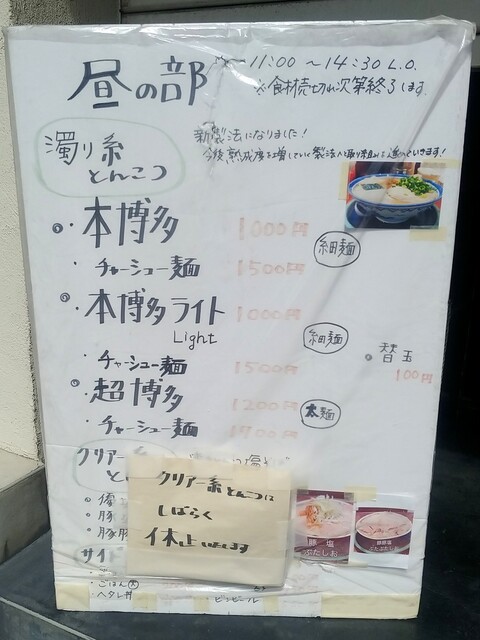 昼の部
11:00 ～14:30 L.O.
※食材売切れ次第終了します。
濁り系
とんこつ
新製法になりました!
①・本博多 1000円 細麺
・チャーシュー麺 1500円
②・本博多ライト 1000円 細麺
Light
・チャーシュー麺 1500円
替玉
100円
・超博多 1200円 太麺
・チャーシュー麺 1700円
クリアー系
クリアー系とんこつは
しばらく
休止します
豚塩
ぶたしお
ぶたぶたしお
サイド
・ごはん 大
・ヘタレ丼